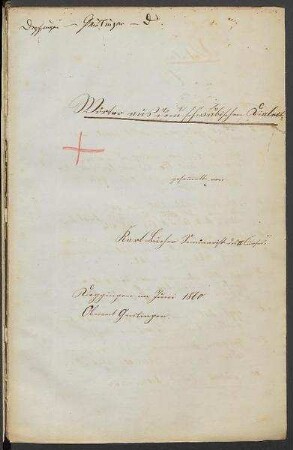 Deggingen – Geislingen – D.
Wörter aus dem schwäbischen Dialect,
gesammelt von
Karl
Deggingen im Juni 1860
Oberamt Geislingen.